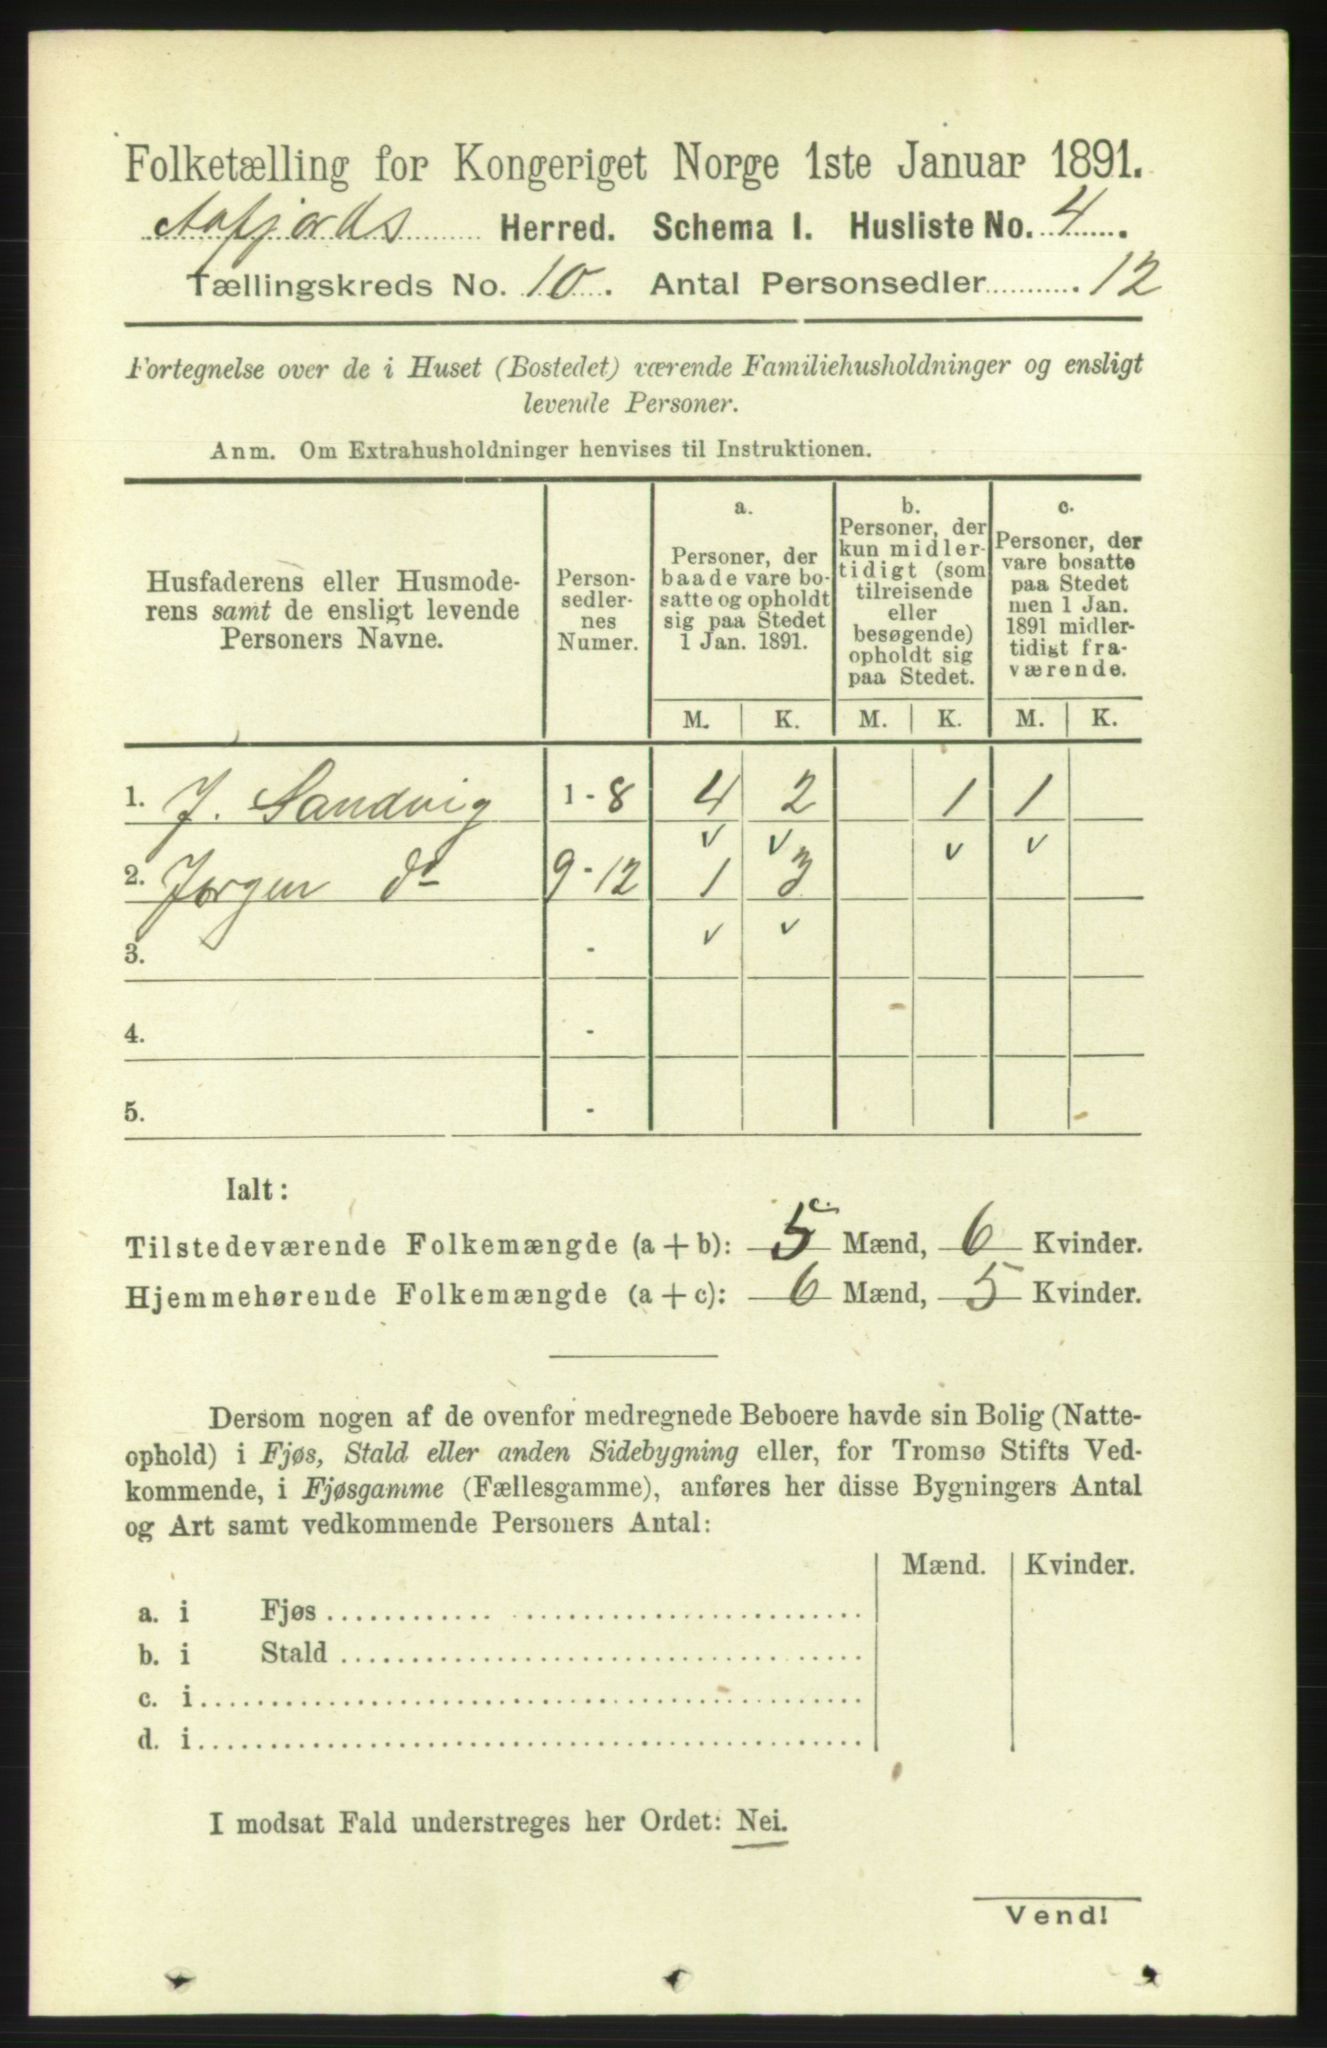 Folketælling for Kongeriget Norge 1ste Januar 1891.
Aafjords Herred. Schema I. Husliste No. 4.
Tællingskreds No. 10. Antal Personsedler 12
Fortegnelse over de i Huset (Bostedet) værende Familiehusholdninger og ensligt
levende Personer.
Anm. Om Extrahusholdninger henvises til Instruktionen.
Husfaderens eller Husmode-
rens samt de ensligt levende
Personers Navne.
Person-
sedler-
nes
Numer.
a.
Personer, der
baade vare bo-
satte og opholdt
sig paa Stedet
1 Jan. 1891.
b.
Personer, der
kun midler-
tidigt (som
tilreisende
eller
besøgende)
opholdt sig
paa Stedet.
c.
Personer, der
vare bosatte
paa Stedet
men 1 Jan.
1891 midler-
tidigt fra-
værende.
M. K. M. K. M. K.
1. J. Sandvig 1 - 8 4 2 1 1
v v v v
2. Jørgen do 9 - 12 1 3
v v
3. -
4. -
5. -
Ialt:
Tilstedeværende Folkemængde (a + b): 5 Mænd, 6 Kvinder.
Hjemmehørende Folkemængde (a + c): 6 Mænd, 5 Kvinder.
Dersom nogen af de ovenfor medregnede Beboere havde sin Bolig (Natte-
ophold) i Fjøs, Stald eller anden Sidebygning eller, for Tromsø Stifts Ved-
kommende, i Fjøsgamme (Fællesgamme), anføres her disse Bygningers Antal
og Art samt vedkommende Personers Antal:
Mænd. Kvinder.
a. i Fjøs
b. i Stald
c. i
d. i
I modsat Fald understreges her Ordet: Nei.
Vend!